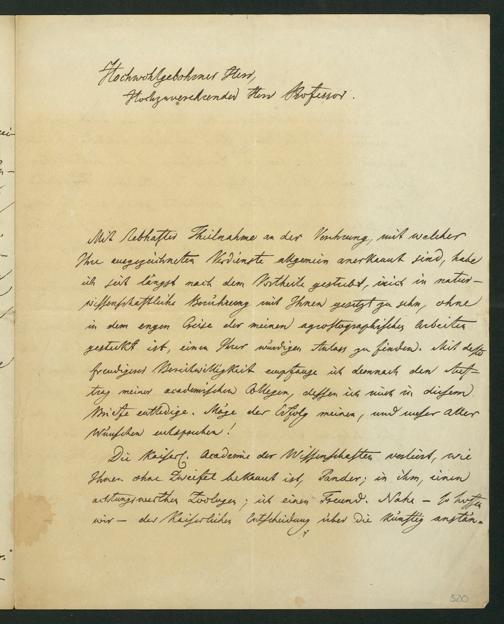 Hochwohlgebohrner Herr,
Hochzuverehrender Herr Professor.
Mit lebhafter Theilnahme an der Verehrung, mit welcher
Ihre ausgezeichneten Verdienste allgemein anerkannt sind, habe
ich seit längst nach dem Vortheile gestrebt, mich in natur-
wissenschaftliche Berührung mit Ihnen gesetzt zu sehn, ohne
in dem engen Creise der meinen agrostographischen Arbeiten
gesteckt ist, einen Ihrer würdigen Anlass zu finden. Mit desto
freudigerer Bereitwilligkeit empfange ich demnach den Auf-
trag meiner academischen Collegen, dessen ich mich in diesem
Briefe entledige. Möge der Erfolg meinen, und unser Aller
Wünschen entsprechen!
Die Kaiserl. Academie der Wissenschaften verliert, wie
Ihnen ohne Zweifel bekannt ist, Pander; in ihm, einen
achtungswerthen Zoologen; ich einen Freund. Nahe – so hoffen
wir – der Kaiserlichen Entscheidung über die künftig anstän-
520